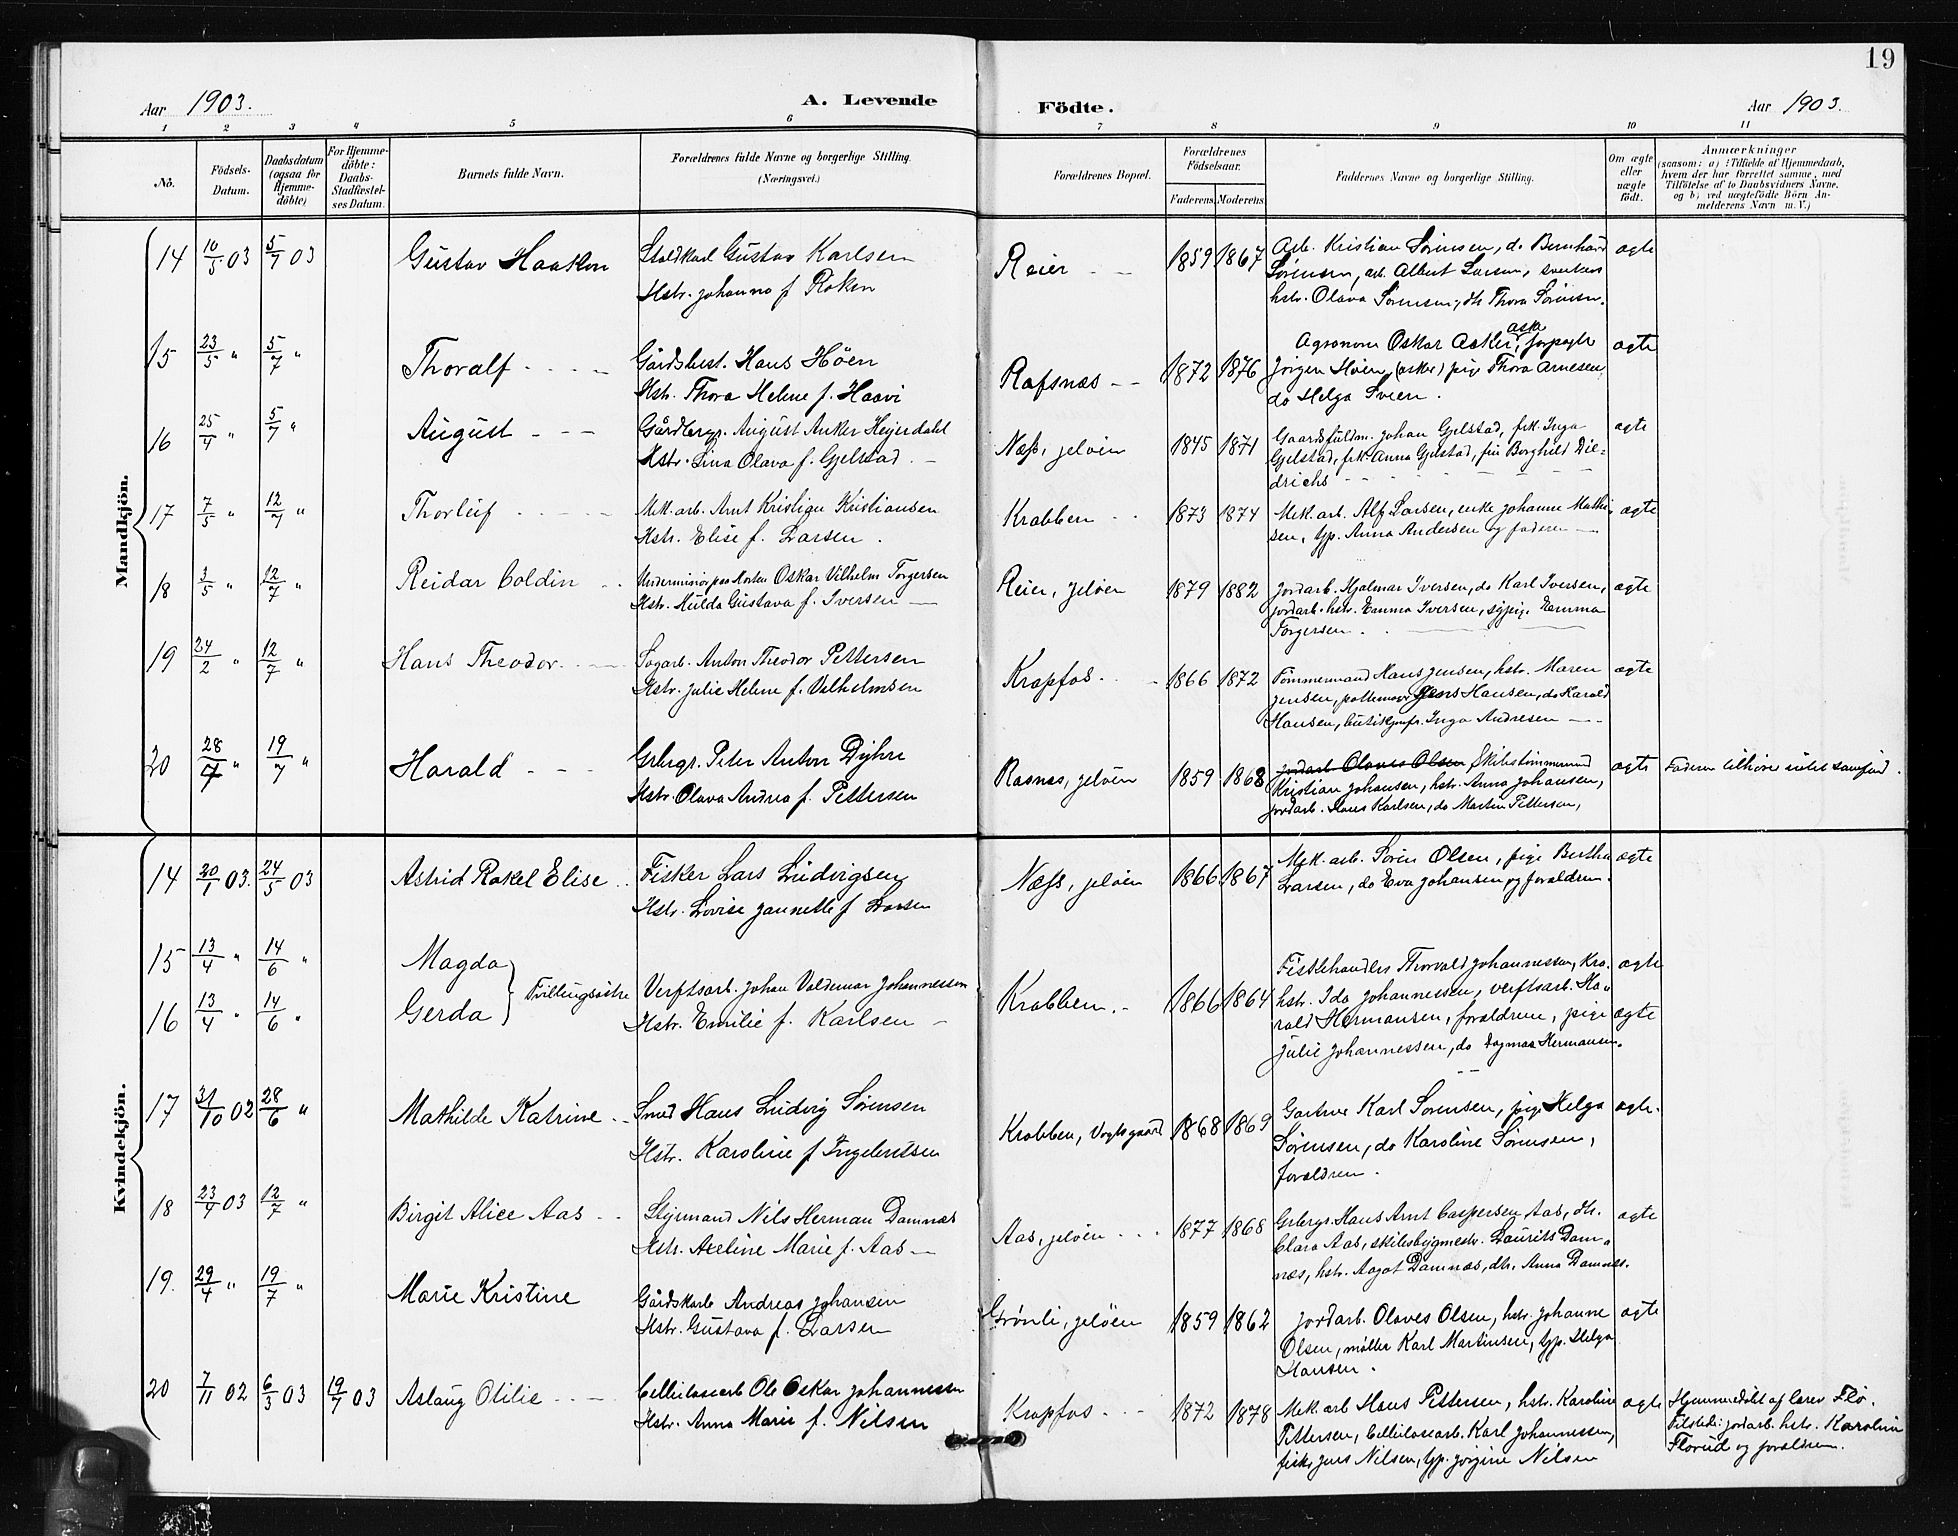 19
Aar 1903. A. Levende Födte. Aar 1903.
1 2 3 4 5 6 7 8 9 10 11
No.
Födsels-Datum.
Daabsdatum (ogsaa for Hjemme-döbte)
For Hjemme-döbte: Daabs-Stadfæstel-ses Datum.
Barnets fulde Navn.
Forældrenes fulde Navne og borgerlige Stilling. (Næringsvei.)
Forældrenes Bopæl.
Forældrenes Födselsaar.
Faderens Moderens
Faddernes Navne og borgerlige Stilling.
Om ægte eller uægte födt.
Anmærkninger
(saasom: a) i Tilfælde af Hjemmedaab,
hvem der har forrettet samme, med
Tilföielse af to Daabsvidners Navne,
og b) ved uægtefödte Börn An-
melderens Navn m. V.)
Mandkjön.
14 10/5 03 5/7 03 Gustav Haakon
Staldkarl Gustav Karlsen
Hstr. Johanna f. Røken
Reier 1859 1867
Arb. Kristian Sørensen, do Bernhard
Sørensen, arb. Albert Larsen,
hstr. Olava Sørensen, dtr Thora Sørensen.
ægte
15 23/5 " 5/7 " Thoralf
Gårdsbest. Hans Höen
Hstr. Thora Helene f. Haavi
Rafsnæs 1872 1876
Agronom Oskar Asker, forpagter
Jørgen Høien (asker) pige Thora Arnesen
do Helga Svien.
ægte
16 25/4 " 5/7 " August
Gårdbrgr. August Anker Hejerdahl
Hstr. Lina Olava f. Gjelstad.
Næss, Jeløen 1845 1871
Gaardsfuldm. Johan Gjelstad, frk. Inga
Gjelstad, frk. Anna Gjelstad, frk Borghild Die-
drichs
ægte
17 7/5 " 12/7 " Thorleif
Mek. arb. Arnt Kristian Kristiansen
Hstr. Elise f. Larsen.
Krabben 1873 1874
Mek. arb. Alf Larsen, enke Johanne Mathi-
sen, typ. Anna Andersen og faderen
ægte
18 3/5 " 12/7 " Reidar Coldin
Underminör paa Horten Oskar Vilhelm Torgersen
Hstr. Hulda Gustava f. Iversen
Reier, Jeløen 1879 1882
Jordarb. Hjalmar Iversen, do Karl Iversen,
jordarb. hstr. Emma Iversen, sypige Emma
Torgersen.
ægte
19 24/2 " 12/7 " Hans Theodor
Sagarb. Anton Theodor Pettersen
Hstr. Julie Helene f. Vilhelmsen
Krapfos 1866 1872
Tömmermand Hans Jensen, hstr. Maren
Jensen, pottemager Jens Hansen, do Harald
Hansen, butikjomfr. Inga Andresen
ægte
20 28/4 " 19/7 " Harald
Grbrgr. Peter Anton Dyhre
Hstr. Olava Andrea f. Pettersen
Rasnæs, Jeløen 1859 1868
Jordarb. Olaves Olsen Skibstömmermand
Kristian Johansen, hstr. Anna Johansen,
jordarb. Hans Karlsen, do Martin Pettersen,
ægte
Faderen tilhörer intet samfund.
Kvindekjön.
14 20/1 03. 24/5 03 Astrid Rakel Elise
Fisker Lars Ludvigsen
Hstr. Lovise Jannette f. Larsen
Næss, Jeløen 1866 1867
Mek. arb. Sören Olsen, pige Bertha
Larsen, do Eva Johansen og forældrene.
ægte
15 13/4 " 14/6 " Magda
16 13/4 " 14/6 " Gerda
Tvillingsöstre
Verftsarb. Johan Valdemar Johannessen
Hstr. Emilie f. Karlsen
Krabben 1866 1864
Fiskehandler Thorvald Johannessen, Kra.
hstr. Ida Johannessen, verftsarb. Ha-
rald Hermansen, forældrene, pige
Julie Johannessen, do Dagmar Hermansen.
ægte
ægte
17 31/10 02 28/6 " Mathilde Katrine
Smed Hans Ludvig Sørensen
Hstr. Karoline f. Ingebretsen
Krabben, Vogtsgaard 1868 1869
Gartner Karl Sørensen, pige Helga
Sørensen, do Karoline Sørensen,
forældren.
ægte
18 23/4 03 12/7 " Birgit Alice Aas
Styrmand Nils Herman Damnæs
Hstr. Axeline Marie f. Aas
Aas, Jeløen 1877 1868
Grbrgr. Hans Arnt Caspersen Aas, dtr.
Clara Aas, skibsbygmestr. Laurits Dam-
næs, hstr. Aagot Damnæs, dtr. Anna Damnæs.
ægte
19. 29/4 " 19/7 " Marie Kristine
Gårdskarl Andreas Johansen
Hstr. Gustava f. Larsen
Grønli, Jeløen 1859 1862
Jordarb. Olaves Olsen, hstr. Johanne
Olsen, møller Karl Martinsen, typ. Helga
Hansen.
ægte
20 7/11 02 6/3 03 19/7 03 Aslaug Otilie
Cellulosearb Ole Oskar Johannessen
Hstr. Anna Marie f. Nilsen
Krapfos 1872 1878
Mek. arb Hans Pettersen, hstr. Karoline
Pettersen, Cellulosearb. Karl Johannessen,
Jens Nilsen, typ. Jørgine Nilsen
ægte
Hjemmedöbt af Flö.
Tilstede: jordarb. hstr. Karoline
Florud og forældrene.